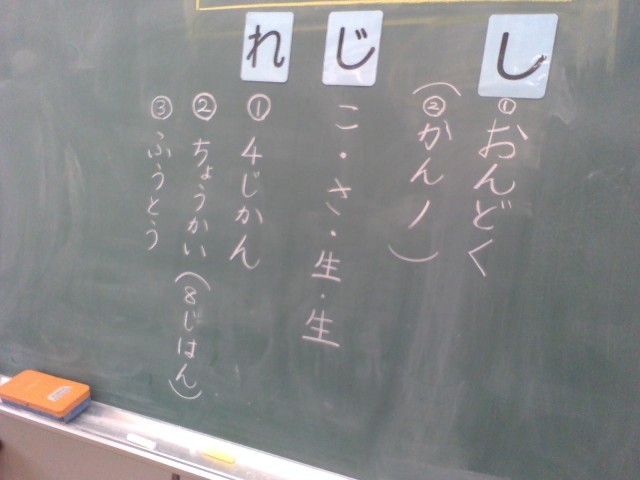 し
①おんどく
(②かんノ)
じ
こ・さ・生・生
れ
①4じかん
②ちょうかい(8じはん)
③ふうとう